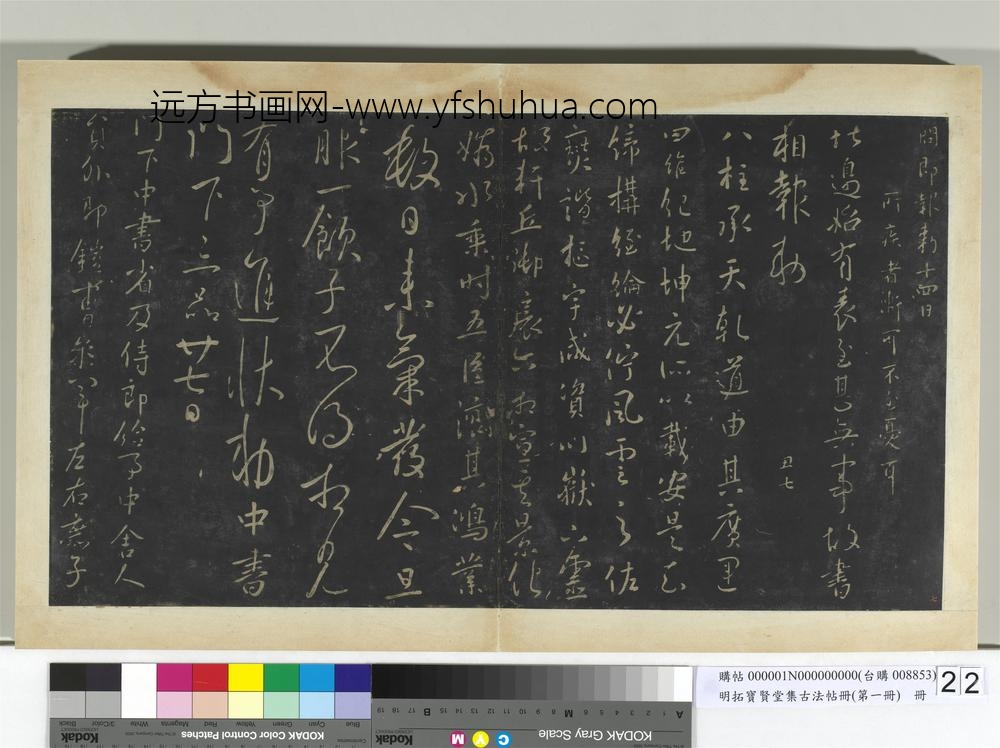 聞即報勅十四日
所疾者漸可不至憂耳
有表至甚無事故書
相報勅
丑七
八柱承天乾道由其廣運
四維紀地坤元所以載安是知
締構經綸必佇風雲之佐
燮諧 宇咸資川嶽之靈
故軒丘御宸六相宣其景化
媯水乘時五臣濟其鴻業
數日來氣發今旦
服一飲子不得相見
有事進狀勅中書
門下三品廿七日
門下中書省及侍郎給事中舍人
左右
七
远方书画网-www.yfshuhua.com
購帖 000001N000000000(台購 008853)
明拓寶賢堂集古法帖冊(第一冊) 冊
22
KODAK Color Control Patches
Kodak
Blue
Cyan
Green
Yellow
Red
Magenta
White
3/Color
Black
KODAK Gray Scale
Kodak
C
Y
M
A 1 2 3 4 5 6 M 8 9 10 11 12 13 14 15 B 17 18 19